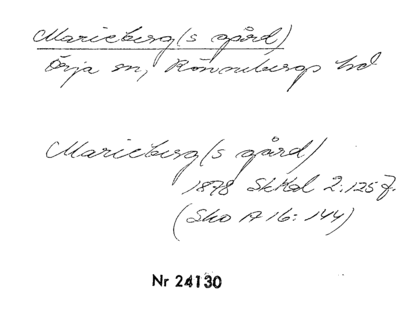 Marieberg(s gård)
Örja sn, Rönnebergs hd
Marieberg(s gård)
1878 SkHdl 2:125 f.
(Sko A 16: 144)
Nr 24130